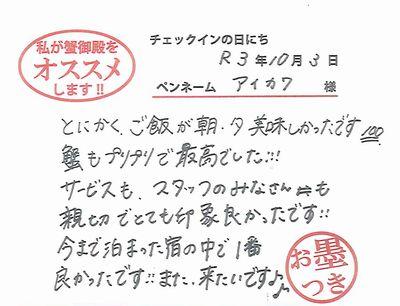 私が蟹御殿を
オススメ
します!!
チェックインの日にち
R3年10月3日
ペンネーム アイカワ 様
とにかく、ご飯が朝・夕美味しかったです💯
蟹もプリプリで最高でした!!!
サービスも、スタッフのみなさんも
親切でとても印象良かったです!!
今まで泊まった宿の中で1番
良かったです!!また、来たいです♪
お墨
つき